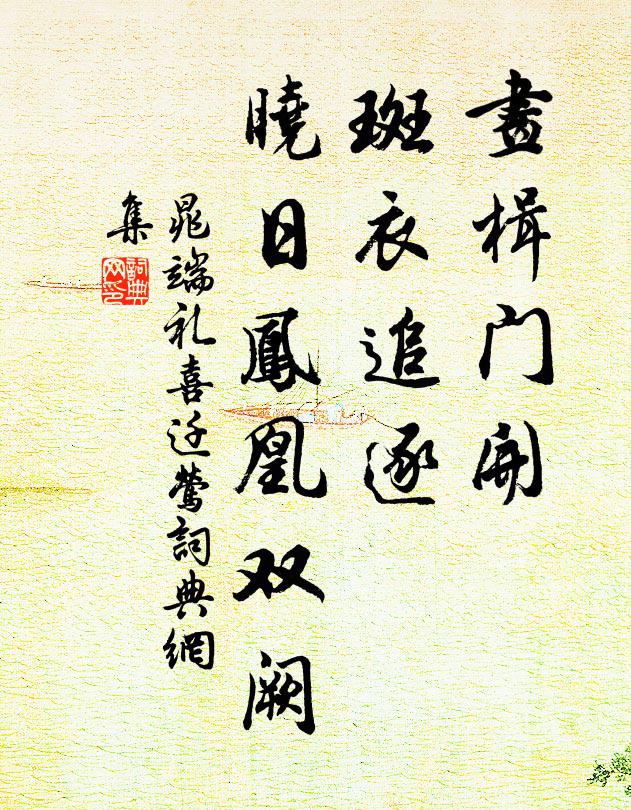 畫楫門開
斑衣追逐
曉日鳳凰双阙
晁端礼喜迁鶯詞典網
集
詞典网印